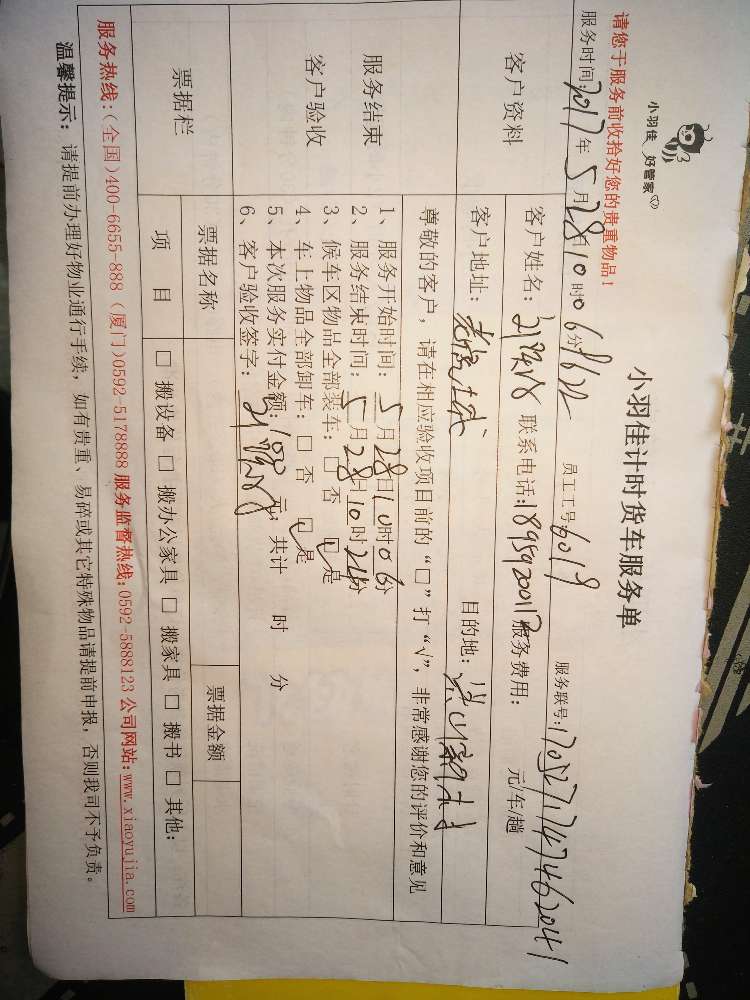 小羽佳 好管家
小羽佳计时货车服务单
请您于服务前收拾好您的贵重物品!
服务时间:2017年5月28日10时06分 员工工号:6019 服务联号:1705271747462041
客户资料
客户姓名: 联系电话:18959200117 服务费用: 元/车/趟
客户地址: 目的地:
服务结束
客户验收
尊敬的客户,请在相应验收项目前的“□”打“√”,非常感谢您的评价和意见
1、服务开始时间:5月28日10时06分
2、服务结束时间:5月28日10时24分
3、候车区物品全部装车:□否 ☑是
4、车上物品全部卸车:□否 ☑是
5、本次服务实付金额:100元,共计 时 分
6、客户验收签字:
票据栏
票据名称 票据金额
项 目 □ 搬设备 □ 搬办公家具 □ 搬家具 □ 搬书 □ 其他:
服务热线:(全国)400-6655-888 (厦门)0592-5178888 服务监督热线:0592-5888123 公司网站:www.xiaoyujia.com
温馨提示:请提前办理好物业通行手续,如有贵重、易碎或其它特殊物品请提前申报,否则我司不予负责。